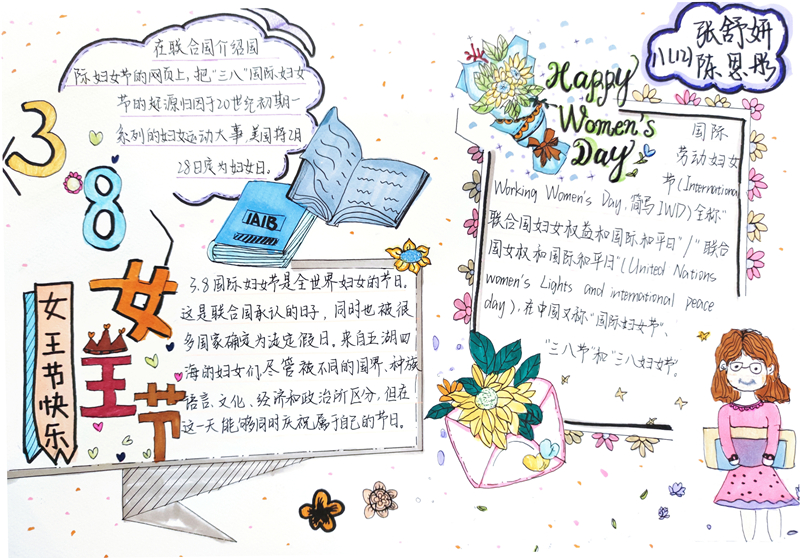 在联合国介绍国
际妇女节的网页上,把“三八”国际妇女
节的起源归因于20世纪初期一
系列的妇女运动大事,美国将2月
28日定为妇女日。
3.8
女
王
节
女王节快乐
IAIB
3.8国际妇女节是全世界妇女的节日。
这是联合国承认的日子,同时也被很
多国家确定为法定假日。来自五湖四
海的妇女们,尽管被不同的国界、种族
语言、文化、经济和政治所区分,但在
这一天能够同时庆祝属于自己的节日。
Happy
Women's
Day
张舒妍
八(12)
陈思彤
国际
劳动妇女
节(International
Working Women's Day,简写IWD)全称“
联合国妇女权益和国际和平日”/“联合
国女权和国际和平日”(United Nations
women's Lights and international peace
day),在中国又称“国际妇女节”、
“三八节”和“三八妇女节”。